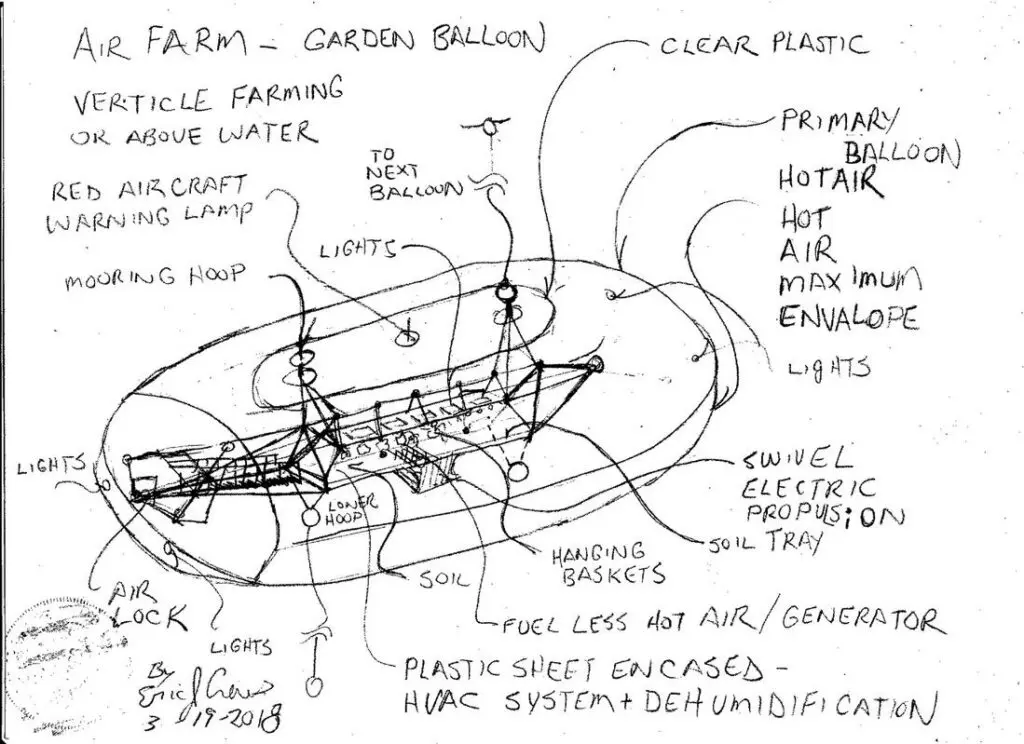 AIR FARM - GARDEN BALLOON
VERTICLE FARMING
OR ABOVE WATER
CLEAR PLASTIC
TO
NEXT
BALLOON
PRIMARY
BALLOON
HOT AIR
HOT
AIR
MAXIMUM
ENVALOPE
RED AIRCRAFT
WARNING LAMP
LIGHTS
MOORING HOOP
LIGHTS
LIGHTS
LOWER
HOOP
SWIVEL
ELECTRIC
PROPULSION
SOIL TRAY
HANGING
BASKETS
SOIL
AIR
LOCK
LIGHTS
FUEL LESS HOT AIR/GENERATOR
PLASTIC SHEET ENCASED -
HVAC SYSTEM + DEHUMIDIFICATION
By
Eric
3 19-2018